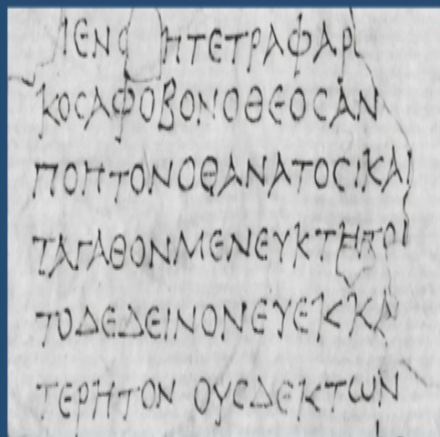 ΙΕΝΟ ΗΤΕΤΡΑΦΑΡΙ
ΚΟϹΑΦΟΒΟΝΟΘΕΟϹΑΝ
ΠΟΠΤΟΝΟΘΑΝΑΤΟϹΙΚΑΙ
ΤΑΓΑΘΟΝΜΕΝΕΥΚΤΗΤΟΙ
ΤΟΔΕΔΕΙΝΟΝΕΥΕΚΚΑ
ΤΕΡΗΤΟΝ ΟΥϹΔΕΚΤΩΝ